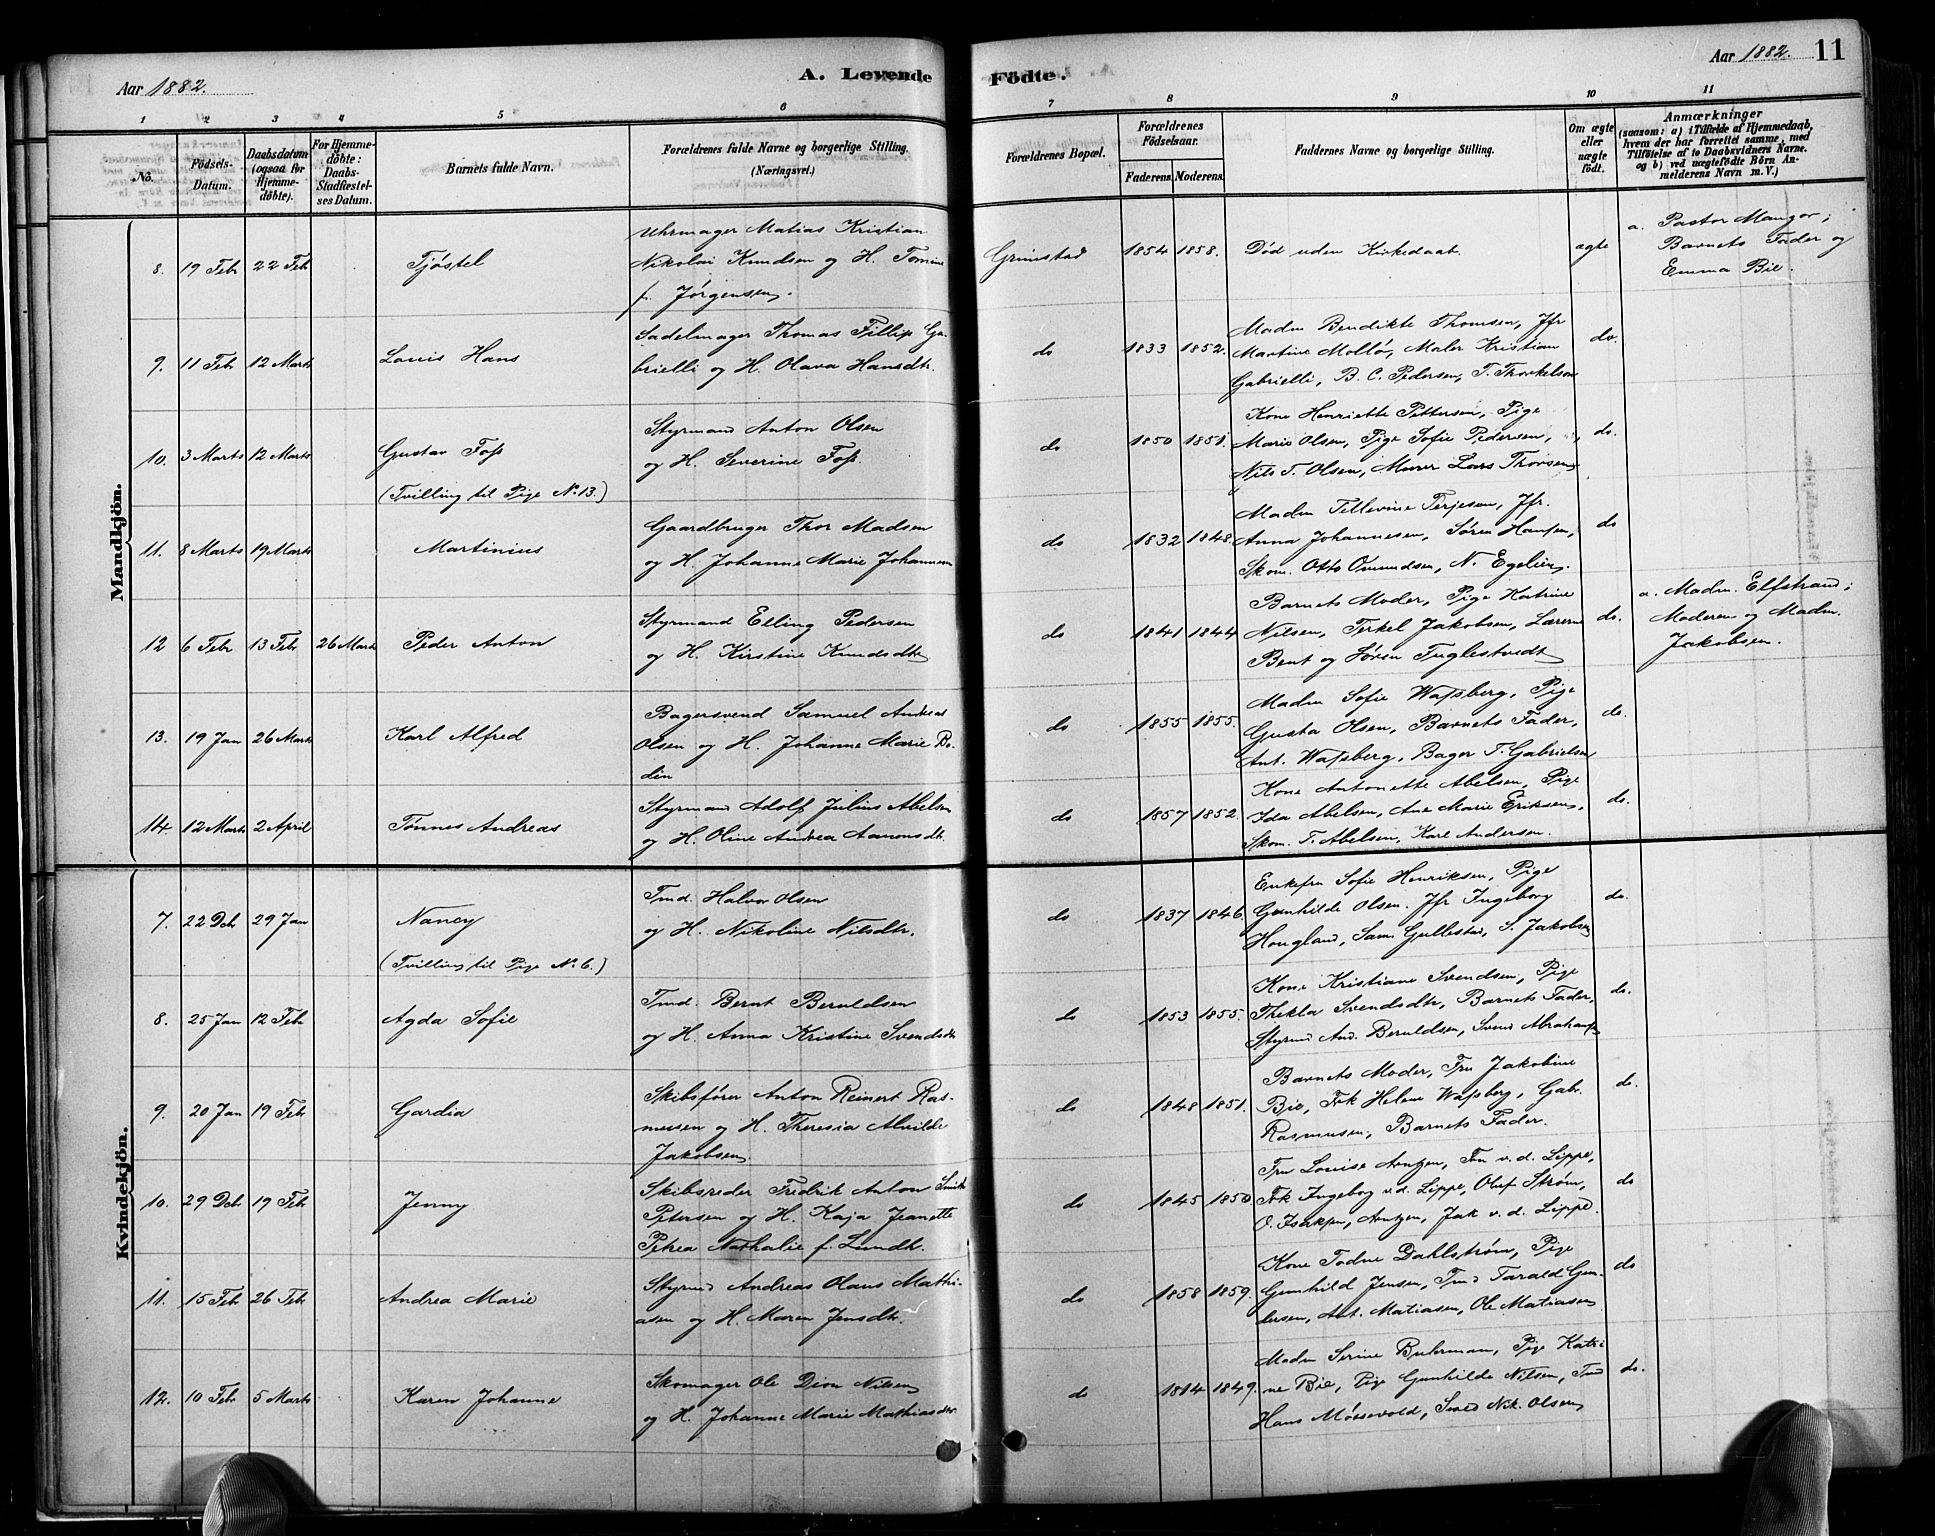 Aar 1882.
A. Levende
Födte.
Aar 1882. 11
1 2 3 4 5 6 7 8 9 10 11
No.
Födsels-Datum.
Daabsdatum (ogsaa for Hjemmedöbte).
For Hjemmedöbte: Daabs-Stadfæstelses Datum.
Barnets fulde Navn.
Forældrenes fulde Navne og borgerlige Stilling.
(Næringsvei.)
Forældrenes Bopæl.
Forældrenes Födselsaar.
Faderens. Moderens.
Faddernes Navne og borgerlige Stilling.
Om ægte eller uægte födt.
Anmærkninger
(saasom: a) i Tilfælde af Hjemmedaab,
hvem der har forrettet samme, med
Tilföielse af to Daabsvidners Navne.
og b) ved uægtefödte Börn An-
melderens Navn m. V.)
Mandkjön.
8. 19 Febr 22 Febr Tjøstel
Uhrmager Matias Kristian
Nikolai Knudsen og H. Tomine
f. Jørgensen.
Grimstad 1854 1858. Død uden Kirkedaab. ægte
a. Pastor Mangor;
Barnets Fader og
Emma Bie.
9. 11 Febr 12 Marts Louis Hans
Sadelmager Thomas Fillip Ga-
brielli og H. Olava Hansdtr.
do 1833 1852.
Madm Bendikte Thomsen, Jfr
Martine Mollø, Maler Kristian
Gabrielli, B. C. Pedersen, T. Thorkelsen
do.
10. 3 Marts 12 Marts Gustav Foss
(Tvilling til Pige No. 13.)
Styrmand Anton Olsen
og H. Severine Foss.
do 1850 1851.
Kone Henriette Pettersen, Pige
Marie Olsen, Pige Sofie Pedersen,
Nils T. Olsen, Murer Lars Thorsen
do.
11. 8 Marts 19 Marts Martinius
Gaardbruger Thor Madsen
og H. Johanne Marie Johannesen
do 1832 1848.
Madm Tellevine Terjesen, Jfr.
Anna Johannesen, Søren Hansen,
Skom. Otto Omundsen, N. Egelien.
do
12 6 Febr 13 Febr 26 Marts Peder Anton
Styrmand Elling Pedersen
og H. Kirstine Knudsdtr
do 1841 1844
Barnets Moder, Pige Katrine
Nilsen, Terkel Jakobsen, Lærerne
Bent og Søren Fuglestvedt
do.
a. Madm. Elfstrand;
Moderen og Madm.
Jakobsen.
13. 19 Jan 26 Marts Karl Alfred
Bagersvend Samuel Andreas
Olsen og H. Johanne Marie Bo-
din
do 1855 1855.
Madm Sofie Wassberg, Pige
Gusta Olsen, Barnets Fader,
Ant. Wassberg, Bager T. Gabrielsen
do.
14. 12 Marts 2 April Tønnes Andreas
Styrmand Adolf Julius Abelsen
og H. Oline Andrea Aamonsdtr.
do 1857 1852.
Kone Antonette Abelsen, Pige
Ida Abelsen, Ane Marie Eriksen,
Skom. T. Abelsen, Karl Andersen.
do.
Kvindekjön.
7. 22 Dcbr 29 Jan Nancy
(Tvilling til Pige No. 6.)
Tmd. Halvor Olsen
og H. Nikoline Nilsdtr.
do 1837 1846.
Enkefru Sofie Henriksen, Pige
Gunhilde Olsen. Jfr Ingeborg
Hougland, Sam. Gullestad, S. Jakobsen
do.
8. 25 Jan 12 Febr Agda Sofie
Tmd. Bernt Beruldsen
og H. Anna Kristine Svendsdtr
do 1853 1855.
Kone Kristiane Svendsen, Pige
Thekla Svendsdtr, Barnets Fader,
Styrmd And. Beruldsen, Svend Abrahams
do.
9. 20 Jan 19 Febr Gardia
Skibsfører Anton Reinert Ras-
mussen og H. Theresia Alvilde
Jakobsen
do 1848 1851.
Barnets Moder, Fru Jakobine
Bie, Frk Helene Wassberg, Gabr.
Rasmussen, Barnets Fader.
do.
10. 29 Dcbr 19 Febr Jenny
Skibsreder Fredrik Anton Smith
Petersen og H. Kaja Jeanette
Petrea Nathalie f. Lundt.
do 1845 1850
Fru Louise Arntzen, Fru v. d. Lippe,
Frk Ingeborg v. d. Lippe, Oluf Strøm,
O. Isaksen, Arntzen, Jak v. d. Lippe.
do
11. 15 Febr 26 Febr Andrea Marie
Styrmd Andreas Olaus Mathi-
asen og H. Maren Jensdtr.
do 1858 1859.
Kone Todne Dahlstrøm, Pige
Gunhild Jensen, Tmd Tarald Gun-
dersen, Ant. Matiasen, Ole Matiasen
do
12. 10 Febr 5 Marts Karen Johanne
Skomager Ole Dion Nilsen
og H. Johanne Marie Mathiasdtr
do 1814 1849.
Madm Serine Buhrman, Pige Katri-
ne Bie, Pige Gunhilde Nilsen, Tmd
Hans Mørsevold, Nik. Olsen
do.